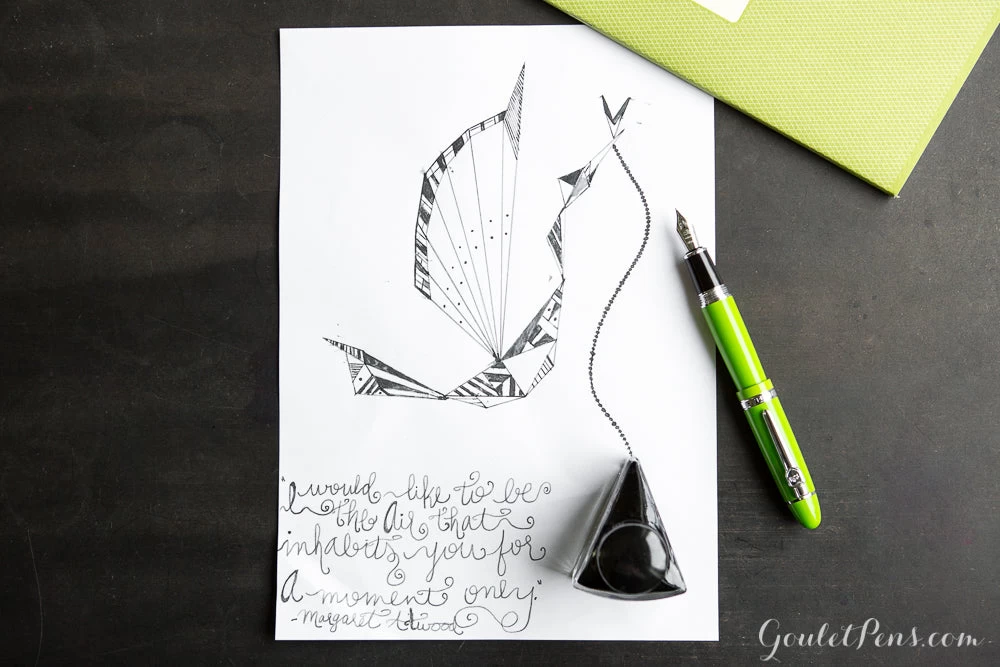 "I would like to be
the Air that
inhabits you for
A moment only."
- Margaret Atwood
GouletPens.com